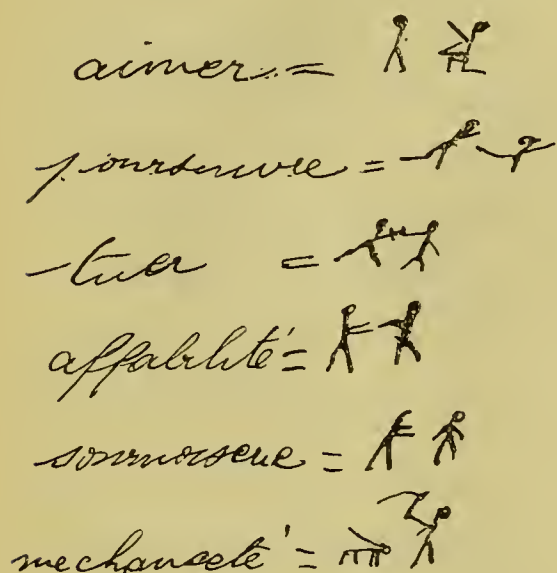 aimer =
poursuivre =
tuer =
affabilité =
sournoiserie =
mechanceté =